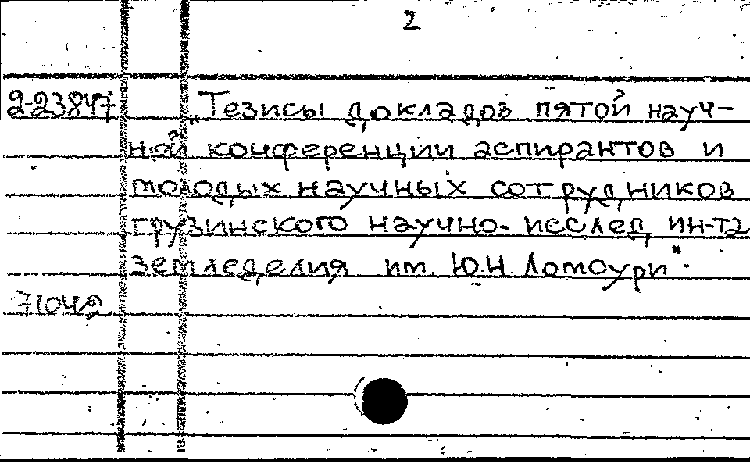 2
2-23847 „Тезисы докладов пятой науч-
ной конференции аспирантов и
молодых научных сотрудников
грузинского научно-исслед. ин-та
земледелия им. Ю.Н. Ломоури".